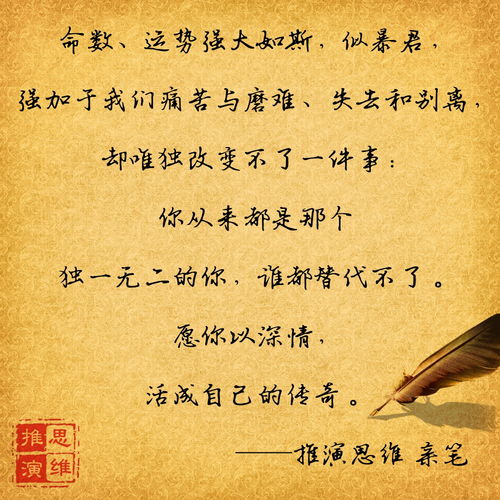 命数、运势强大如斯，似暴君，
强加于我们痛苦与磨难、失去和别离，
却唯独改变不了一件事：
你从来都是那个
独一无二的你，谁都替代不了。
愿你以深情，
活成自己的传奇。
——推演思维 亲笔
推演思维